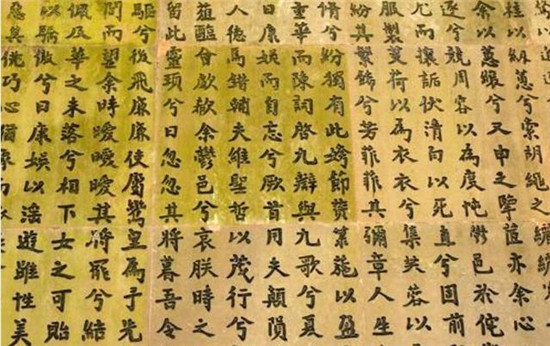 桂以紉蕙兮索胡繩之
余以蕙纕兮又申之擥茝亦余心
逐兮競周容以為度忳鬱邑於侘
尤而攘詬伏清白以死直兮固前
服製芰荷以為衣兮集芙蓉以
紛其繁飾兮芳菲菲其彌章人生
紛獨有此姱節薋菉葹以盈
重華而陳詞啓九辯與九歌兮夏
日康娛而自忘兮厥首用夫顛隕
人德焉錯輔夫維聖哲以茂行兮
菹醢曾歔欷余鬱邑兮哀朕時之
留此靈瑣兮日忽忽其將暮吾令
驅兮後飛廉使屬鸞皇為予先
而望余時曖曖其將罷兮結
佩及華之未落兮相下女之可貽
以驕傲兮日康娛以淫遊雖性美
惡其佻巧心猶